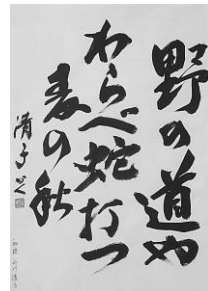 野の道や
わらべ蛇打つ
麦の秋
清子